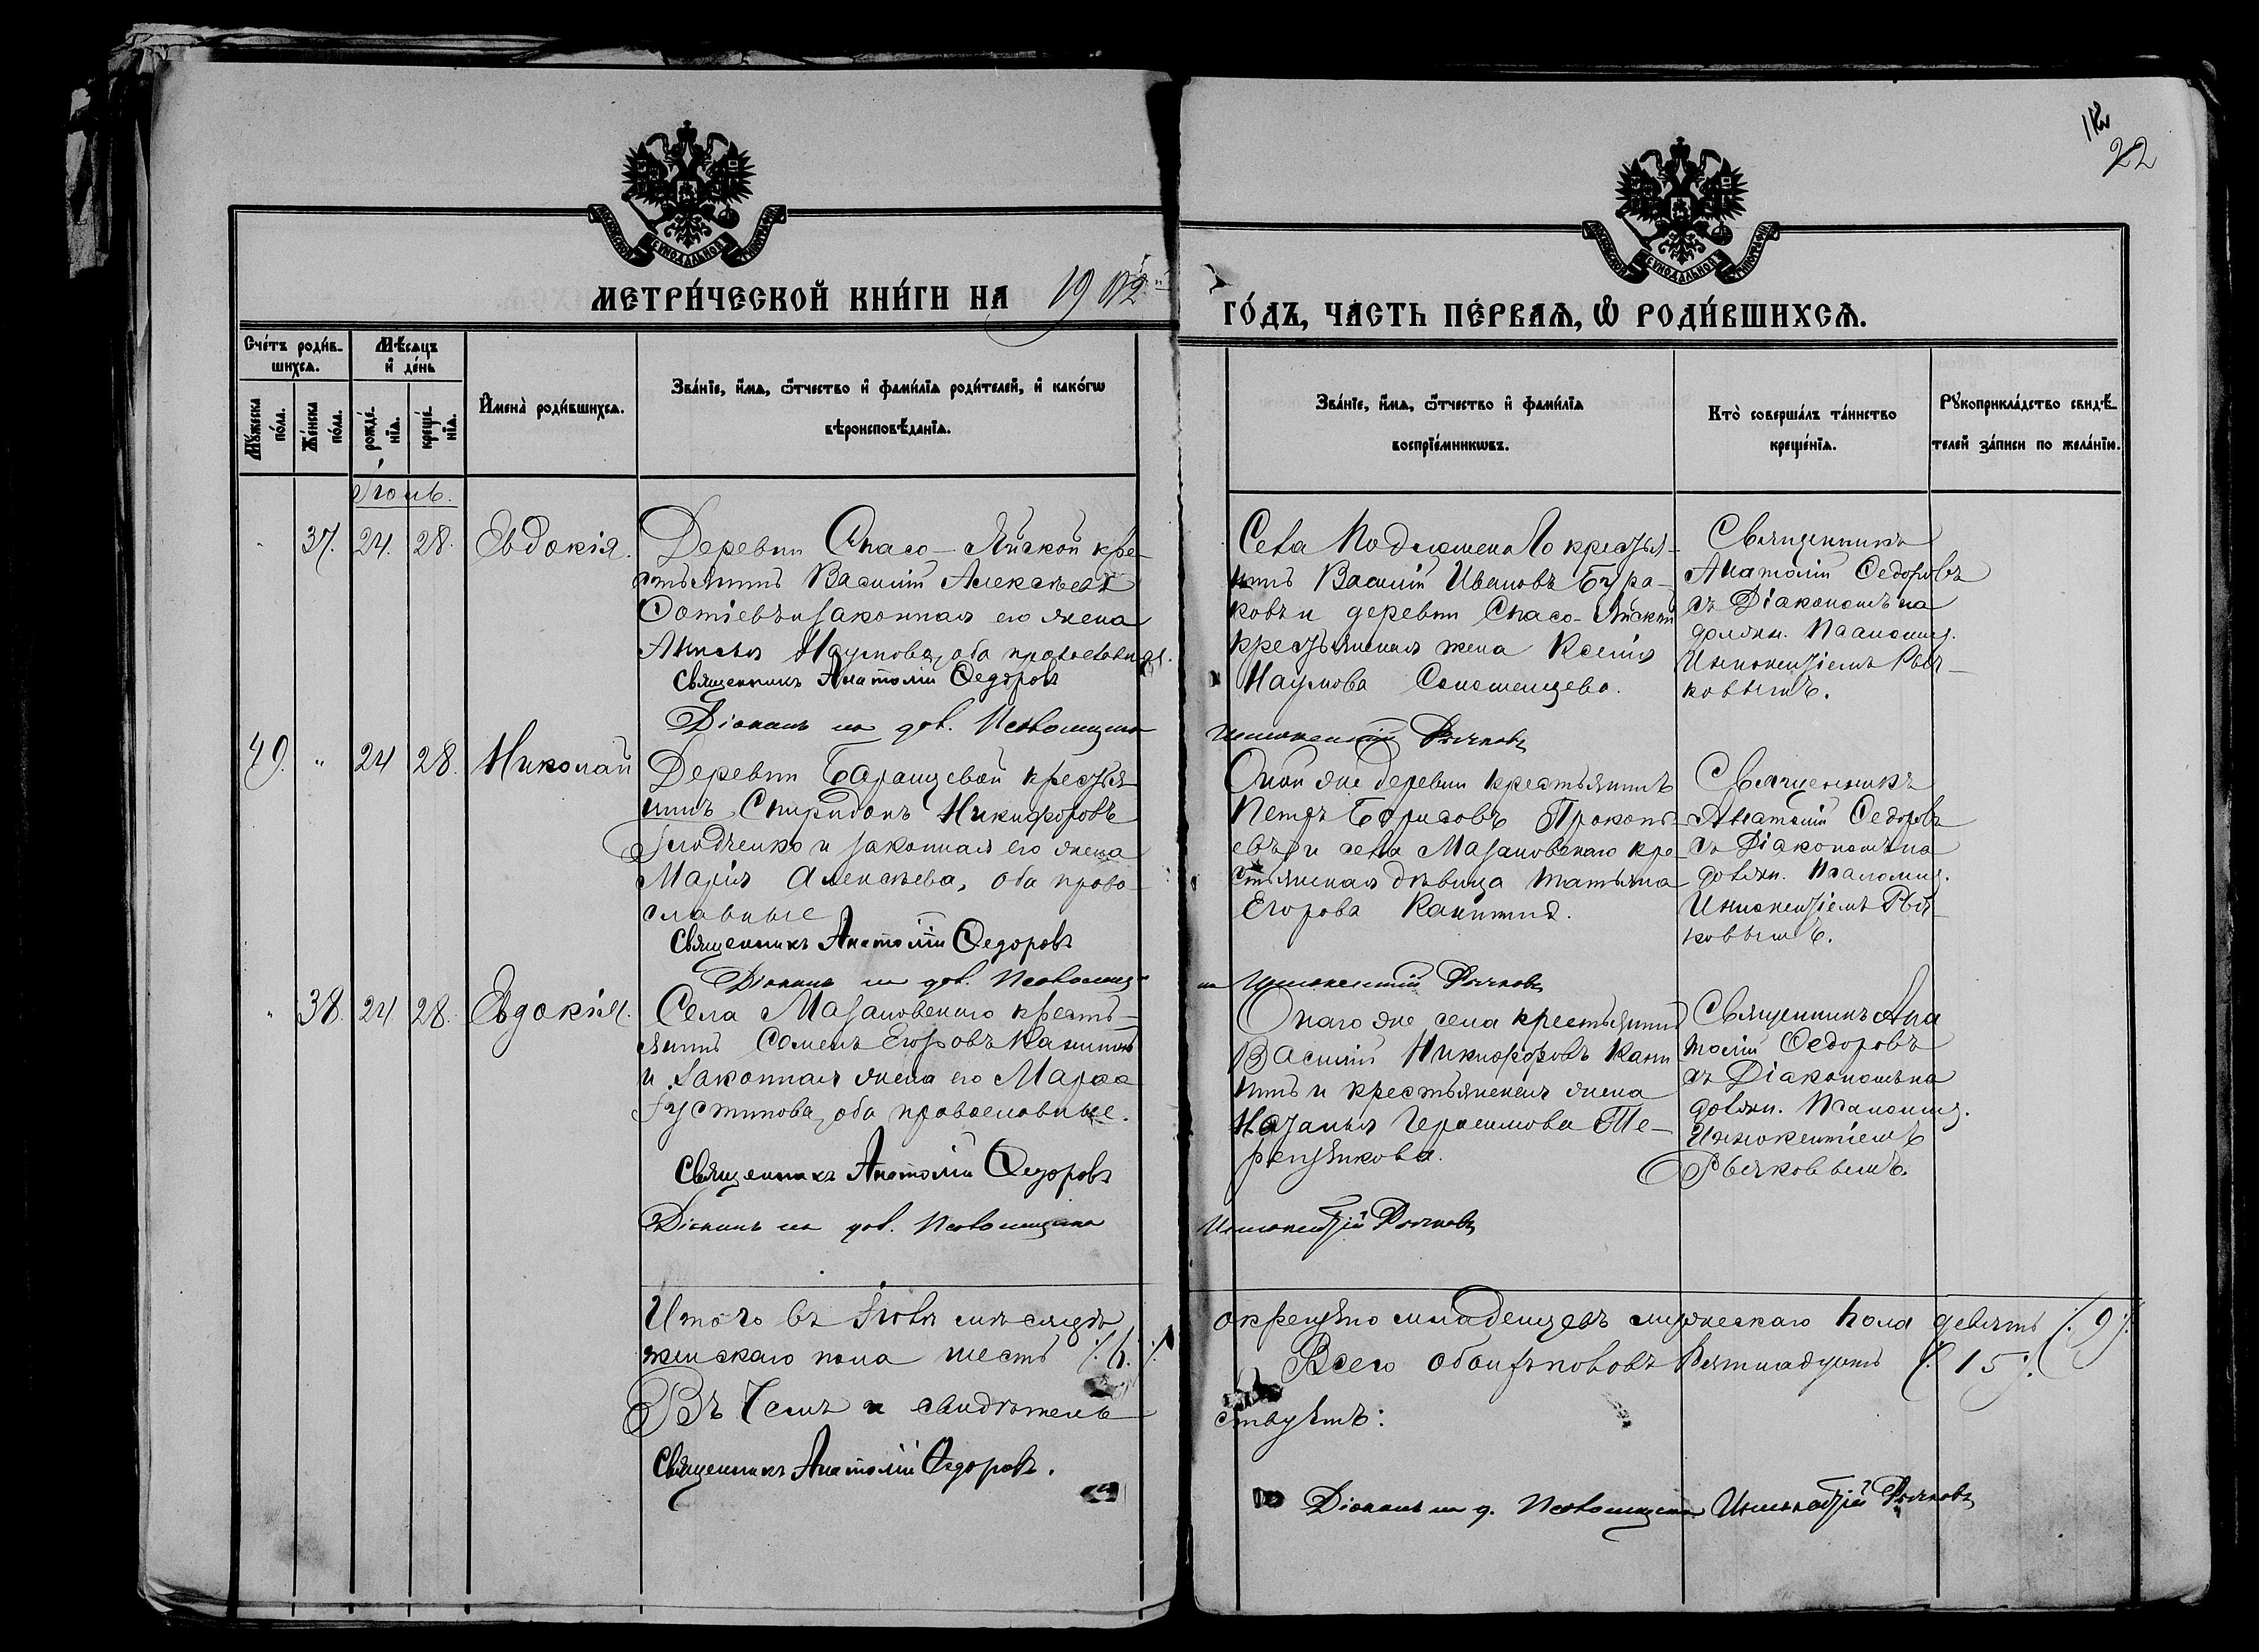 22
МЕТРИ́ЧЕСКОЙ КНИ́ГИ НА 1912й
ГО́ДЪ, ЧА́СТЬ ПЕ́РВАЯ, Ѽ РОДИ́ВШИХСЯ.
Сче́тъ роди́в-
шихся.
Мѣ́сяцъ
и де́нь
Мꙋ́жеска по́ла.
Же́нска по́ла.
рожде́нїя.
креще́нїя.
Имена̀ роди́вшихся.
Зва́нїе, и́мя, ѻ́тчество и фами́лїя роди́телей, и како́гѡ
вѣроисповѣ́данїя.
Зва́нїе, и́мя, ѻ́тчество и фами́лїя
воспрїе́мникѡвъ.
Кто̀ соверша́лъ та́инство
креще́нїя.
Рꙋкоприкла́дство свидѣ́-
телей за́писи по жела́нїю.
Іюль.
37. 24. 28. Евдокія.
Деревни Спасо-Яйской кре-
стьянинъ Василій Алексѣевъ
и законная его жена
Наумова, оба православные.
Священникъ Анатолій Ѳедоровъ
Діаконъ на дол. Псаломщика
Села крестья-
нинъ Василій Ивановъ Бура-
ковъ и деревни Спасо-Яйской
крестьянская жена Ксенія
Наумова
Иннокентій Рычковъ
Священникъ
Анатолій Ѳедоровъ
съ Діакономъ на
должн. Псаломщ.
Иннокентіемъ Рыч-
ковымъ.
49. " 24 28. Николай
Деревни Баранцевой крестья-
нинъ Спиридонъ Никифоровъ
и законная его жена
Марія Алексѣева, оба право-
славные
Священникъ Анатолій Ѳедоровъ
Діаконъ на дол. Псаломщи-
Оной же деревни крестьянинъ
Петръ Борисовъ Прокопь-
евъ и села Мазаловскаго кре-
стьянская дѣвица Татьяна
Егорова
ка Иннокентій Рычковъ
Священникъ
Анатолій Ѳедоровъ
съ Діакономъ на
должн. Псаломщ.
Иннокентіемъ Рыч-
ковымъ.
" 38. 24 28. Евдокія.
Села Мазаловскаго кресть-
янинъ Семенъ Егоровъ
и законная жена его Марѳа
Іустинова, оба православные.
Священникъ Анатолій Ѳедоровъ
Діаконъ на дол. Псаломщика
Онаго же села крестьянинъ
Василій Никифоровъ
и крестьянская жена
Наталья Герасимова Те-
рещенкова.
Иннокентій Рычковъ
Священникъ Ана-
толій Ѳедоровъ
съ Діакономъ на
должн. Псаломщ.
Иннокентіемъ
Рычковымъ.
Итого въ Іюлѣ мѣсяцѣ
окрещено младенцевъ мужескаго пола девять /.9/.
женскаго пола шесть /.6./.
Всего обоихъ половъ пятнадцать /.15/.
Въ чемъ и свидѣтель-
ствуемъ:
Священникъ Анатолій Ѳедоровъ.
Діаконъ на д. Псаломщика Иннокентій Рычковъ